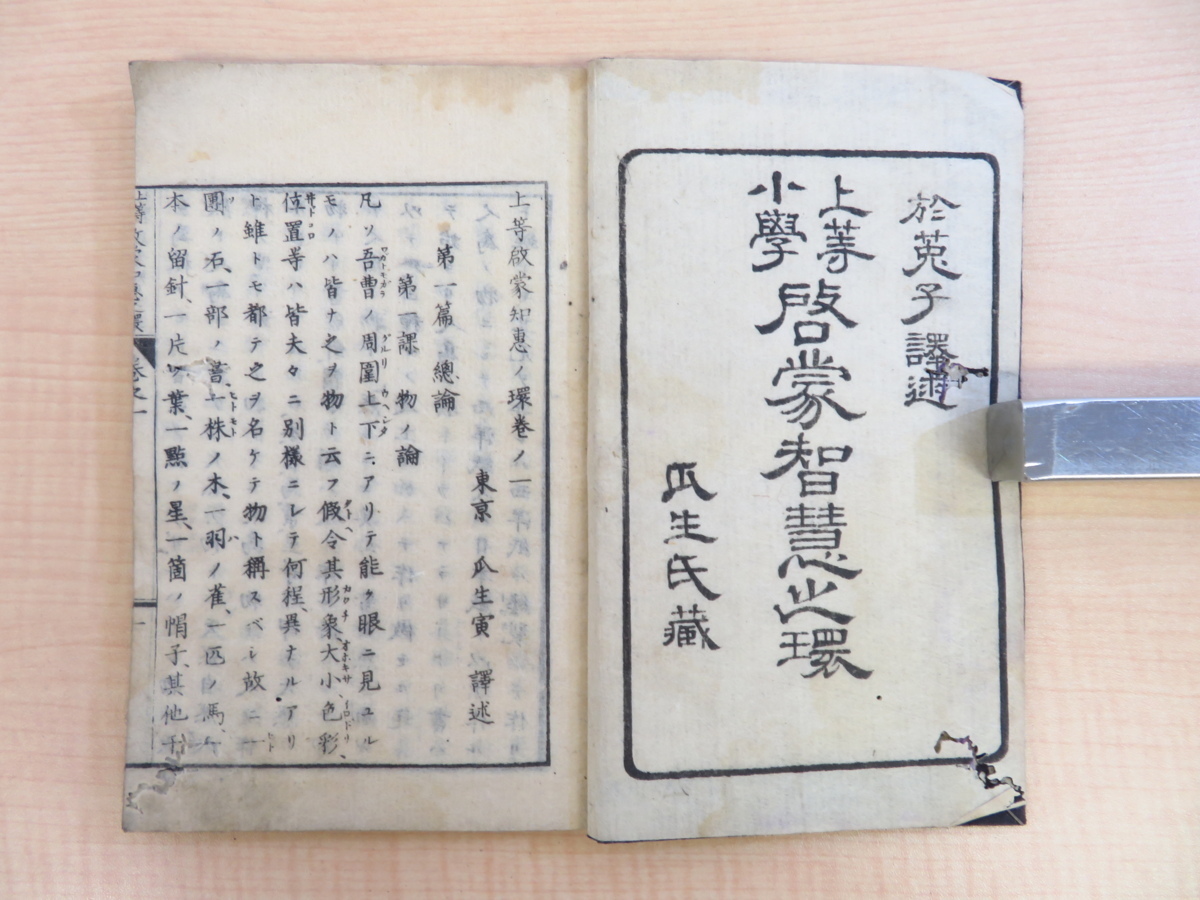 於菟子譯述
上等
小學
啓蒙智慧之環
瓜生氏藏
上等啟蒙知惠ノ環卷ノ一
東京 瓜生寅 譯述
第一篇 總論
第一課 物ノ論
凡ソ吾曹ノ周圍上下ニアリテ能ク眼ニ見ユル
モノハ皆ナ之ヲ物ト云フ假令其形象、大小、色彩、
位置等ハ皆夫々ニ別樣ニシテ何程、異ナルアリ
ト雖トモ都テ之ヲ名ケテ物ト稱スベシ故ニ一
團ノ石、一部ノ書、一株ノ木、一羽ノ雀、一匹ノ馬、一
本ノ留針、一片ノ葉、一點ノ星、一箇ノ帽子、其他